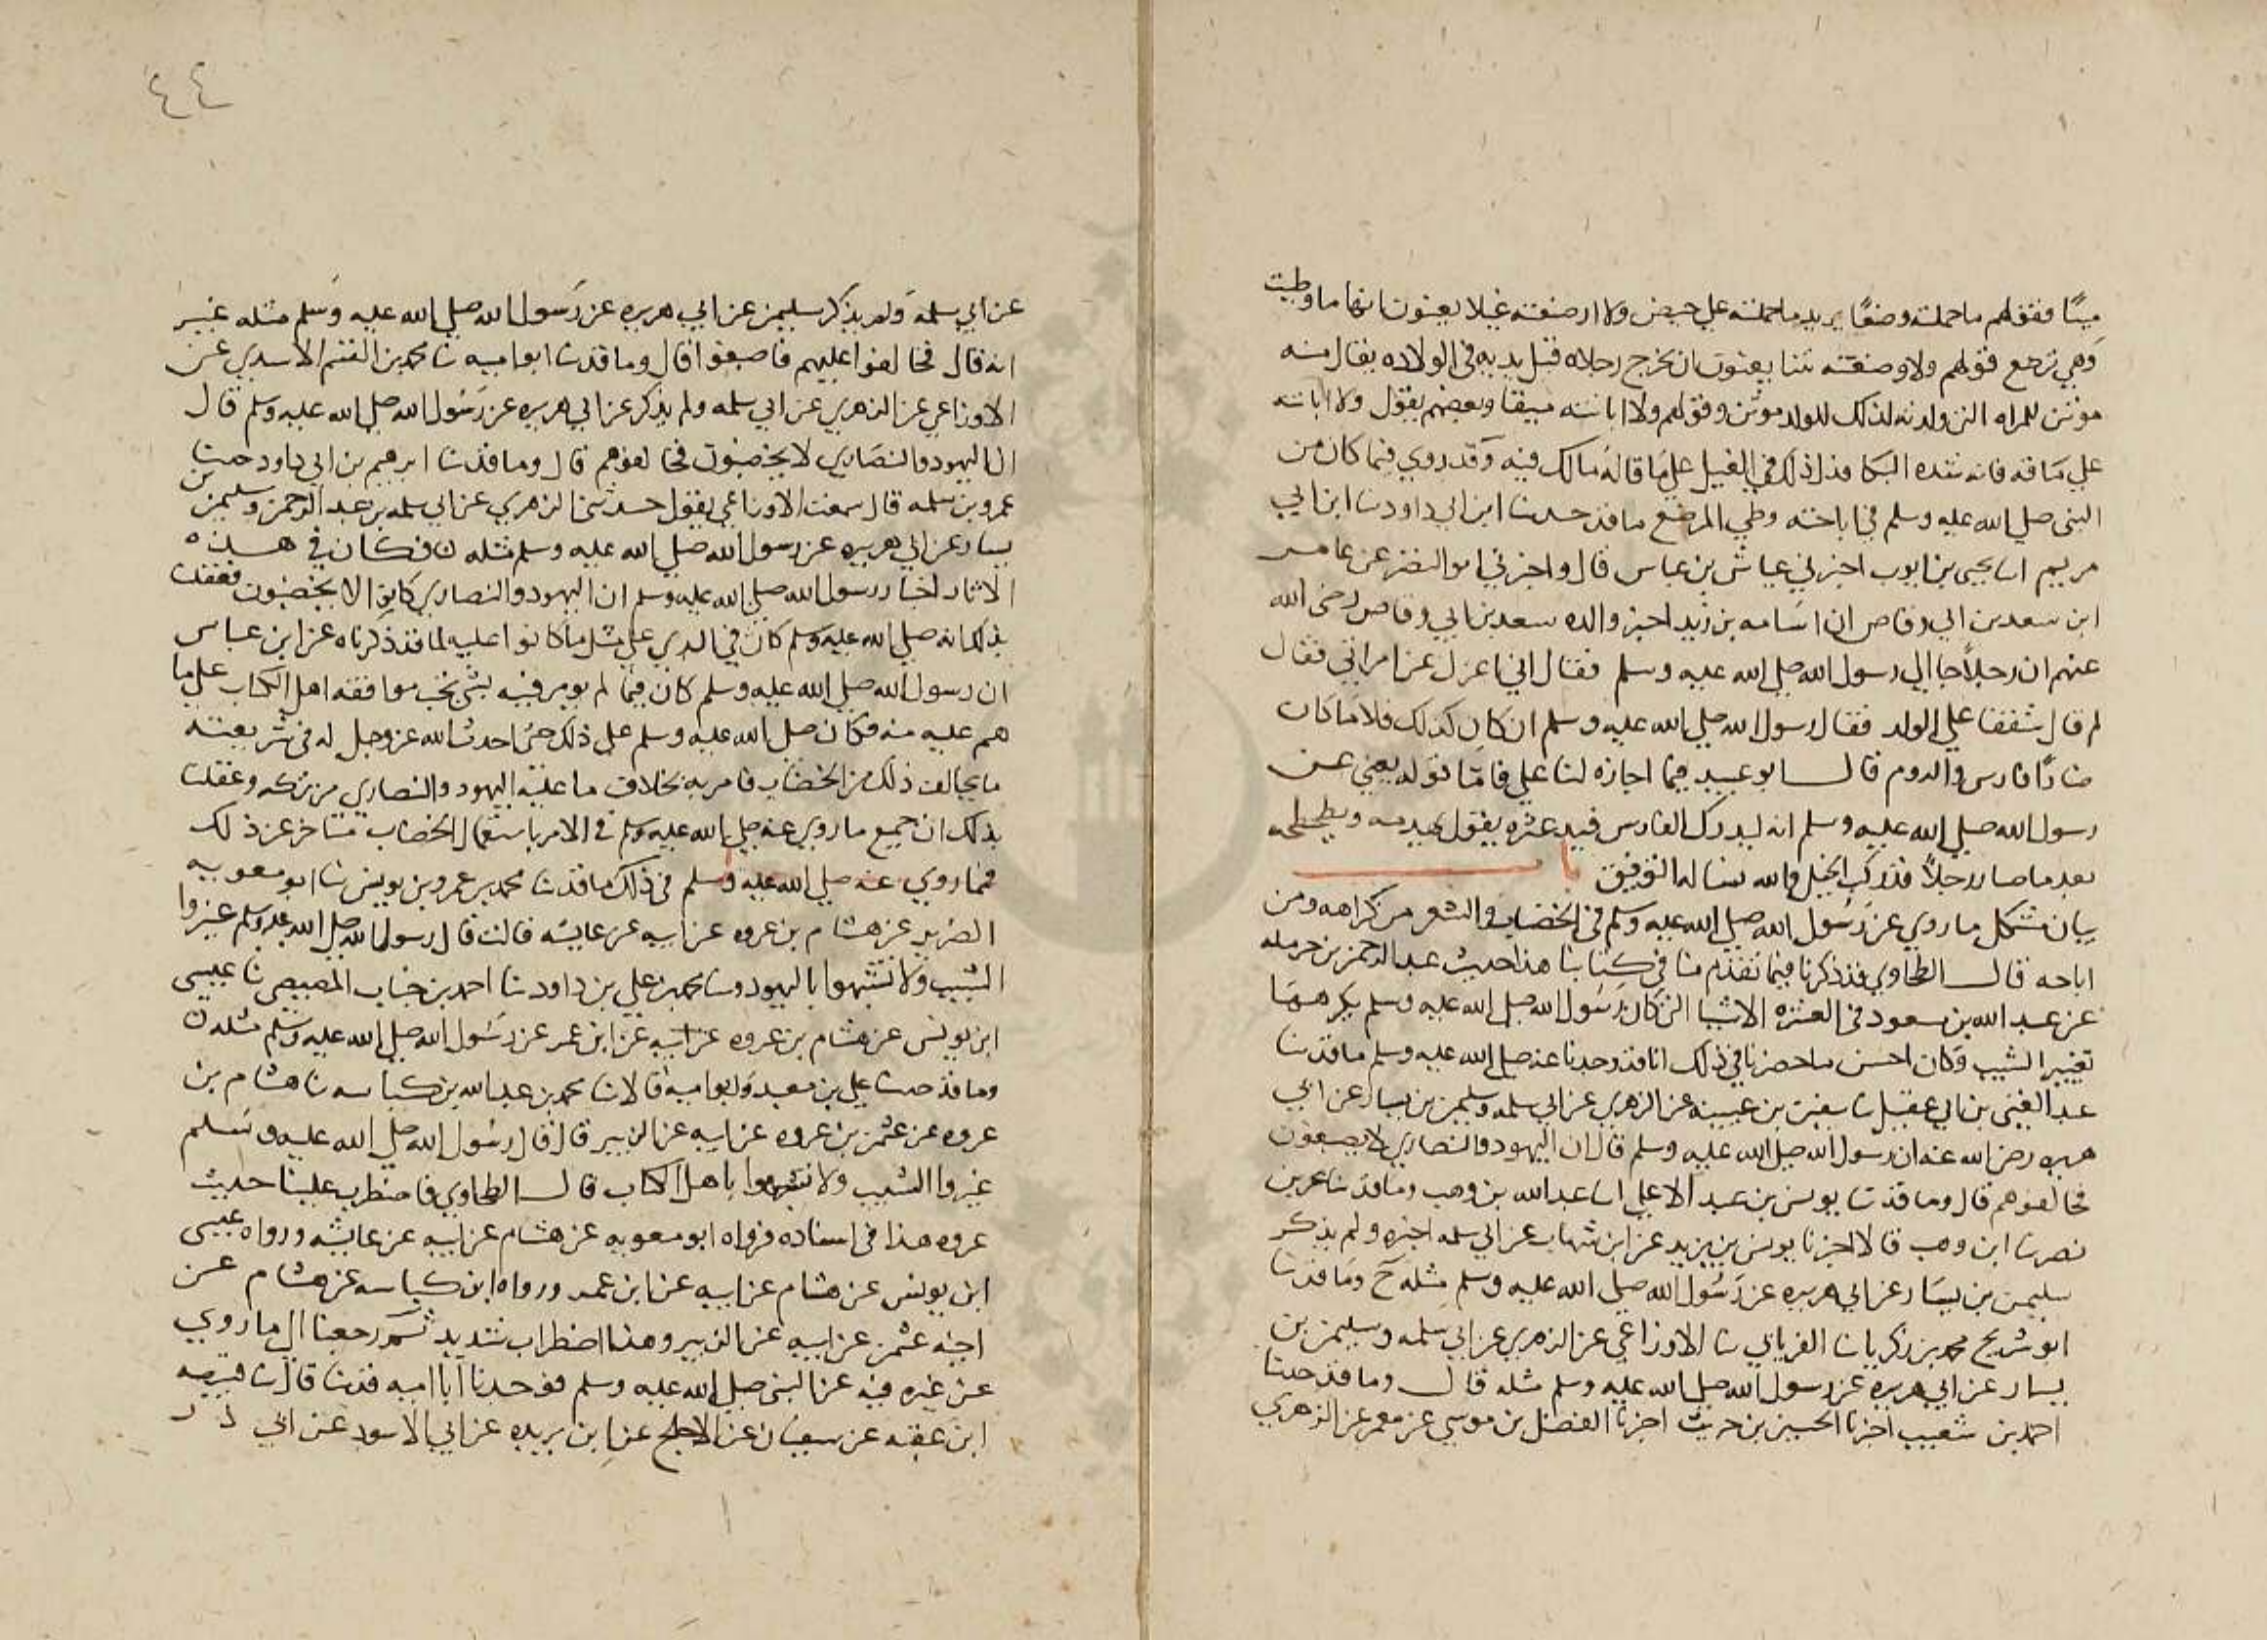 ميتًا فقولهم ما حملته وضعًا يريد ما حملته على حيض ولا ارضعته غيلا يعنون انها ما وطيت
وهي ترضع قولهم ولا وضعته يتنا يعنون ان تخرج رجلاه قبل يديه في الولاده يقال منه
موتن للمراه التي ولدته لذلك للولد موتن وقولهم ولا اباتته ميقا وبعضهم يقول ولا اباتته
على ماقه فانه شده البكا فذا ذلك في الغيل على ما قاله مالك فيه وقد روي فيما كان من
النبي صلى الله عليه وسلم في اباحته وطي المرضع ما قد حدثنا ابن ابي داود نا ابن ابي
مريم انا يحيى بن ايوب اخبرني عياش بن عباس قال واخبرني ابو النضر عن عامر
ابن سعد بن ابي وقاص ان اسامه بن زيد اخبر والده سعد بن ابي وقاص رضى الله
عنهم ان رجلاً جا الى رسول الله صلى الله عليه وسلم فقال اني اعزل عن امراتي فقال
لم قال شفقا على الولد فقال رسول الله صلى الله عليه وسلم ان كان كذلك فلا ما كان
ضارًا فارس والروم قال ابو عبيد فيما اجازه لنا علي فاما قوله يعني عن
رسول الله صلى الله عليه وسلم انه ليدرك الفارس فيدعثره يقول يهدمه ويطحطحه
بعد ما صار رجلاً قد ركب الخيل والله نساله التوفيق باب
بيان مشكل ما روي عن رسول الله صلى الله عليه وسلم في الخضاب والشعر من كراهه ومن
اباحه قال الطحاوي قد ذكرنا فيما تقدم منا في كتابنا هذا حديث عبد الرحمن بن حرمله
عن عبد الله بن مسعود في العشره الاشيا التي كان رسول الله صلى الله عليه وسلم يكرهها
تغيير الشيب وكان احسن ما حضرنا في ذلك انا قد وجدنا عنه صلى الله عليه وسلم ما قد نا
عبد الغني بن ابي عقيل نا سفين بن عيينه عن الزهري عن ابي سلمه وسليمن بن يسار عن ابي
هريره رضى الله عنه ان رسول الله صلى الله عليه وسلم قال ان اليهود والنصارى لا يصبغون
فخالفوهم قال وما قد نا يونس بن عبد الاعلى انا عبد الله بن وهب وما قد نا بحر بن
نصر نا ابن وهب قالا اخبرنا يونس بن يزيد عن ابن شهاب عن ابي سلمه اخبره ولم يذكر
سليمن بن يسار عن ابي هريره عن رسول الله صلى الله عليه وسلم مثله ح وما قد نا
ابو شريح محمد بن زكريا نا الفريابي نا الاوزاعي عن الزهري عن ابي سلمه وسليمن بن
يسار عن ابي هريره عن رسول الله صلى الله عليه وسلم مثله قال وما قد حدثنا
احمد بن شعيب اخبرنا الحسين بن حريث اخبرنا الفضل بن موسى عن معمر عن الزهري
٤٤
عن ابي سلمه ولم يذكر سليمن عن ابي هريره عن رسول الله صلى الله عليه وسلم مثله غير
انه قال فخالفوا عليهم فاصبغوا قال وما قد نا ابو اميه نا محمد بن القسم الاسدي عن
الاوزاعي عن الزهري عن ابي سلمه ولم يذكر عن ابي هريره عن رسول الله صلى الله عليه وسلم قال
ان اليهود والنصارى لا يخضبون فخالفوهم قال وما قد نا ابرهيم بن ابي داود حدثنا
عمرو بن سلمه قال سمعت الاوزاعي يقول حدثني الزهري عن ابي سلمه بن عبد الرحمن وسليمن بن
يسار عن ابي هريره عن رسول الله صلى الله عليه وسلم مثله ن فكان في هذه
الاثار اخبار رسول الله صلى الله عليه وسلم ان اليهود والنصارى كانوا لا يخضبون فعقلنا
بذلك انه صلى الله عليه وسلم كان في البدي على مثل ما كانوا عليه لما قد ذكرناه عن ابن عباس
ان رسول الله صلى الله عليه وسلم كان فيما لم يومر فيه بشي يحب موافقه اهل الكتاب على ما
هم عليه منه فكان صلى الله عليه وسلم على ذلك حتى احدث الله عز وجل له في شريعته
ما يخالف ذلك من الخضاب فامر به بخلاف ما عليه اليهود والنصارى من تركه وعقلنا
بذلك ان جميع ما روي عنه صلى الله عليه وسلم في الامر باستعمال الخضاب متاخر عن ذلك
فمما روي عنه صلى الله عليه وسلم في ذلك ما قد نا محمد بن عمرو بن يونس نا ابو معويه
الضرير عن هشام بن عروه عن ابيه عن عايشه قالت قال رسول الله صلى الله عليه وسلم غيروا
الشيب ولا تشبهوا باليهود ونا محمد بن علي بن داود نا احمد بن جناب المصيصي نا عيسى
ابن يونس عن هشام بن عروه عن ابيه عن ابن عمر عن رسول الله صلى الله عليه وسلم مثله ن
وما قد حدثنا علي بن معبد وابو اميه قالا نا محمد بن عبد الله بن كناسه نا هشام بن
عروه عن عثمن بن عروه عن ابيه عن الزبير قال قال رسول الله صلى الله عليه وسلم
غيروا الشيب ولا تشبهوا باهل الكتاب قال الطحاوي فاضطرب علينا حديث
عروه هذا في اسناده فرواه ابو معويه عن هشام عن ابيه عن عايشه ورواه عيسى
ابن يونس عن هشام عن ابيه عن ابن عمر ورواه ابن كناسه عن هشام عن
اخيه عثمن عن ابيه عن الزبير وهذا اضطراب شديد ثم رجعنا الى ما روي
عن غيره فيه عن النبي صلى الله عليه وسلم فوجدنا ابا اميه قد نا قال نا قبيصه
ابن عقبه عن سفيان عن الاجلح عن ابن بريده عن ابي الاسود عن ابي ذر